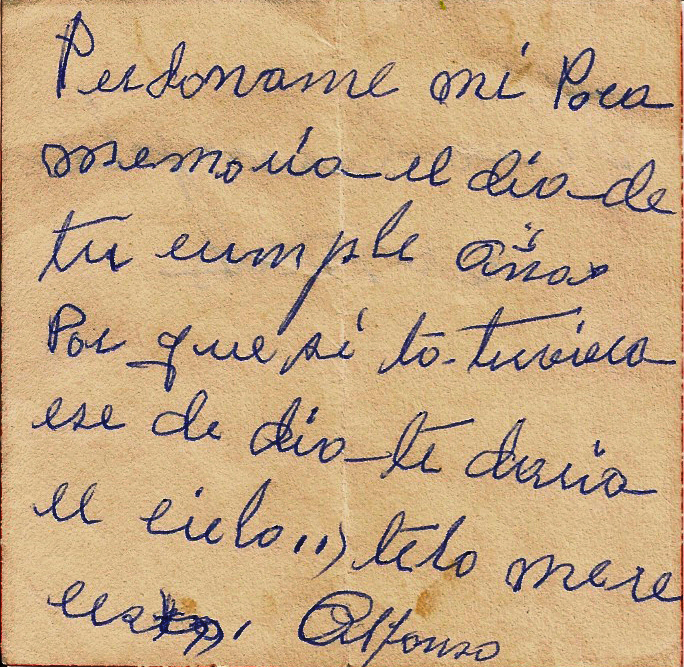 Perdoname mi Poca
memoria el dia de
tu cumple años
Por que si lo tuviera
ese de dia te daria
el cielo,,) telo mere
ces, Alfonso